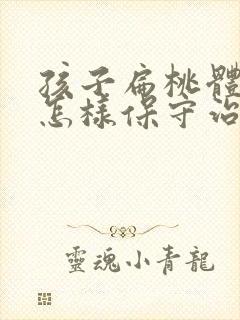 孩子扁桃體
怎樣保守治
靈魂小青龍